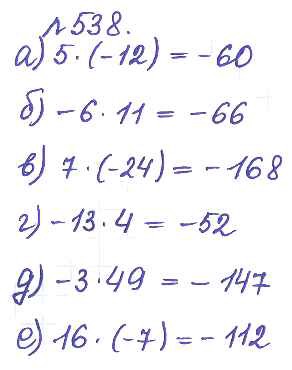 №538.
а) 5 · (-12) = -60
б) -6 · 11 = -66
в) 7 · (-24) = -168
г) -13 · 4 = -52
д) -3 · 49 = -147
е) 16 · (-7) = -112